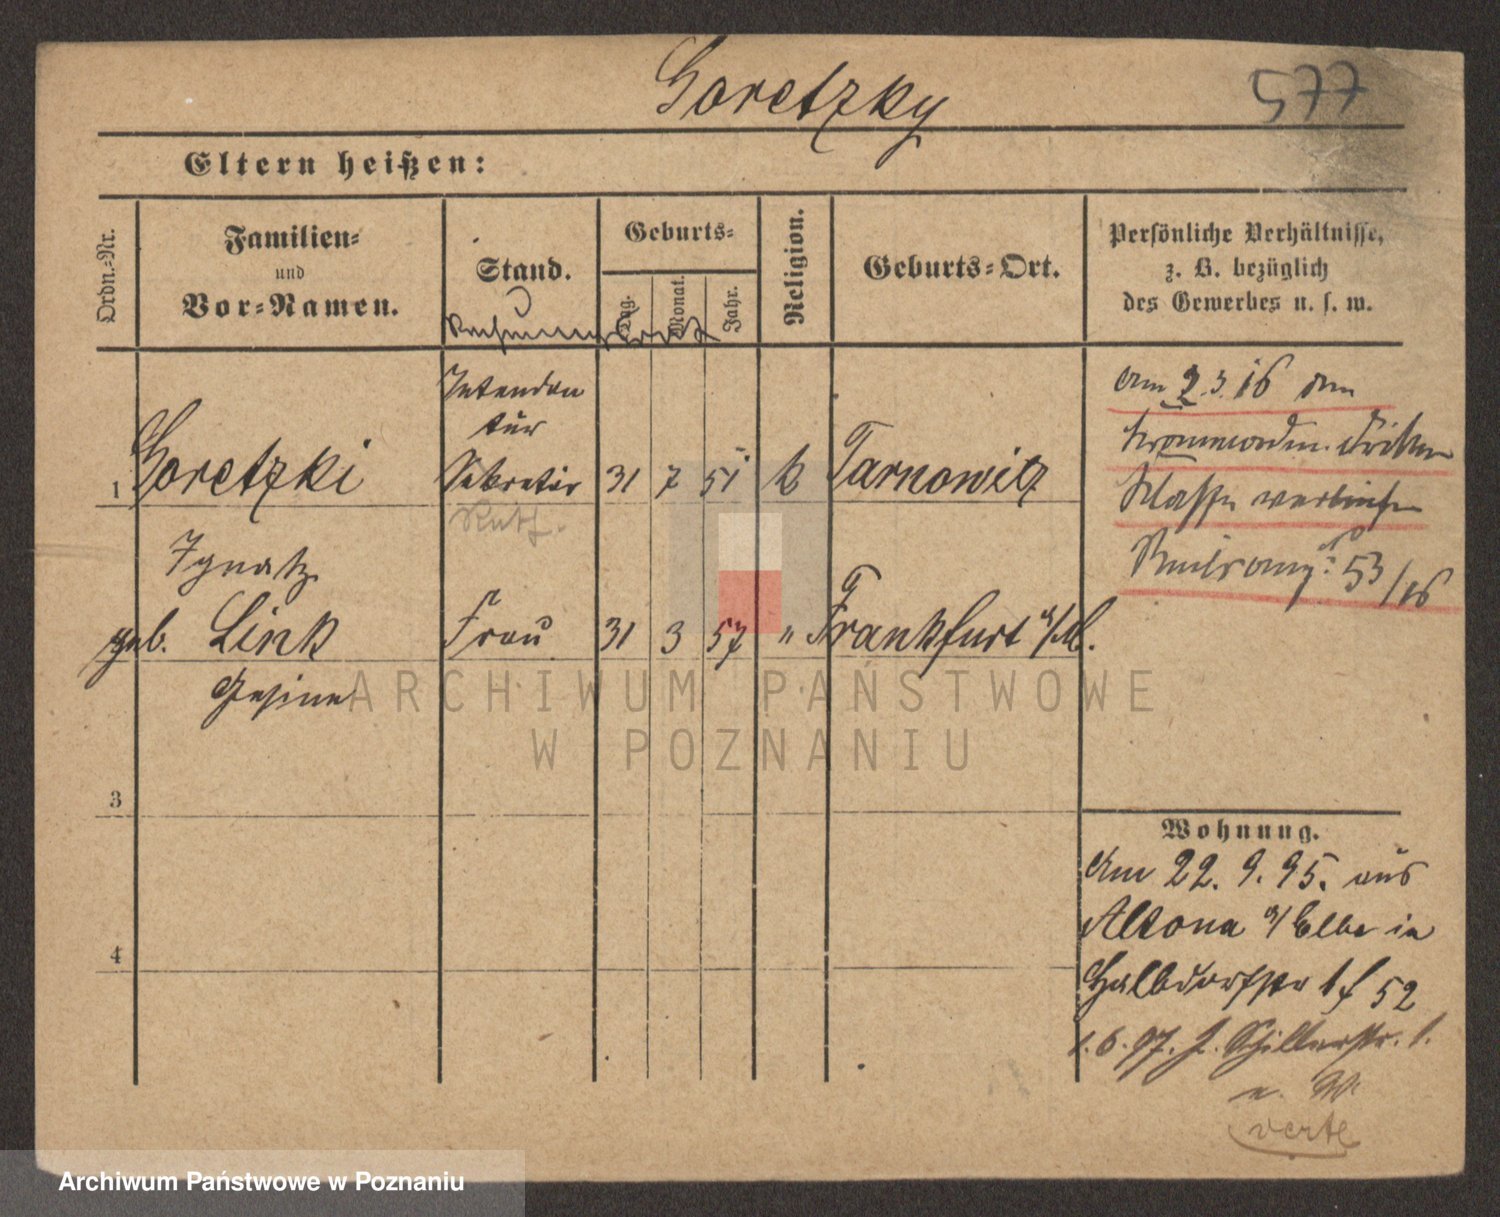 Goretzky
577
Eltern heißen:
Ordn.-Nr.
Familien-
und
Vor-Namen.
Stand.
Geburts-
Tag.
Monat.
Jahr.
Religion.
Geburts-Ort.
Persönliche Verhältnisse,
z. B. bezüglich
des Gewerbes u. s. w.
Rechnungsrat
1
Goretzki
Ignatz
Intendan
tür
Sekretär
31
7
51
k
Tarnowitz
am 2.3.16 den
Kronenorden dritter
Klasse verliehen
53/16
geb. Link
Gesine
Frau
31
3
57
"
Frankfurt a/M.
ARCHIWUM PAŃSTWOWE
W POZNANIU
3
4
Wohnung.
Am 22. 9. 95. aus
Altona a/Elbe in
Halbdorfstr 1f 52
1. 6. 97. Schillerstr. 1.
n. W.
verte
Archiwum Państwowe w Poznaniu